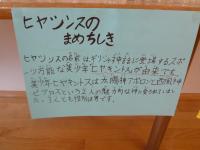 ヒヤシンスの
まめちしき
ヒヤシンスの名前はギリシャ神話に登場するスポ
ーツ万能な美少年ヒヤキントスが由来です。
美少年ヒヤキントスは太陽神アポロンと西風の神
ゼピュロスという2人の魅力的な神に愛されていまし
た。3人とも性別は男です。